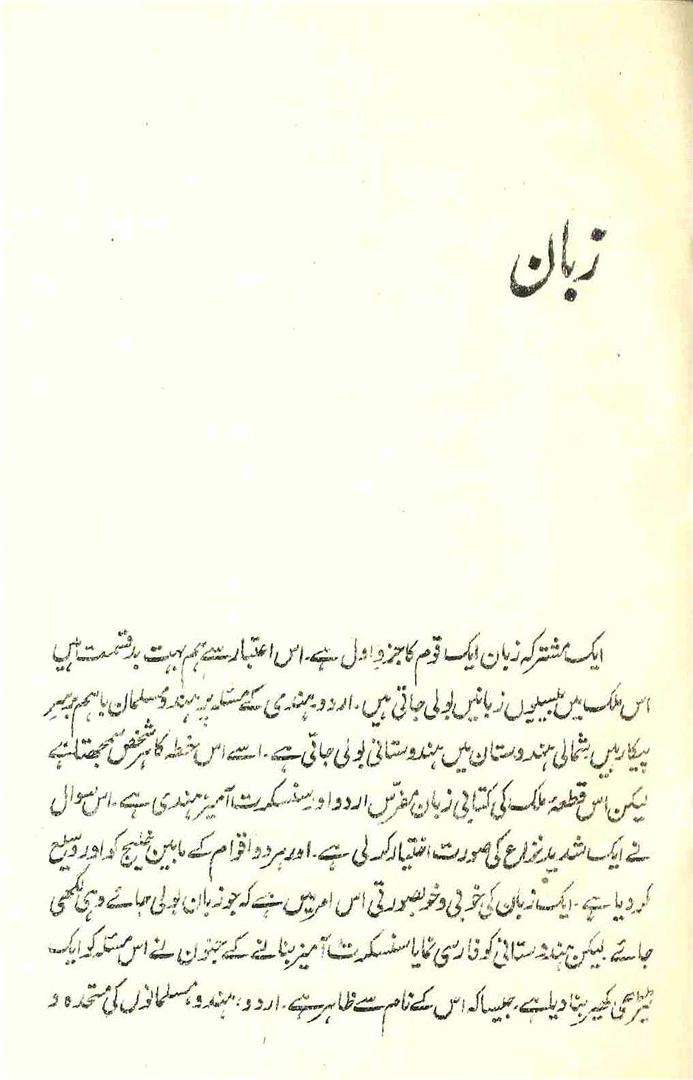 زبان
ایک مشترکہ زبان ایک قوم کا جزوِ اول ہے۔ اس اعتبار سے ہم بہت بدقسمت ہیں
اس ملک میں بیسیوں زبانیں بولی جاتی ہیں۔ اردو ہندی کے مسئلہ پر ہندو مسلمان باہم برسرِ
پیکار ہیں شمالی ہندوستان میں ہندوستانی بولی جاتی ہے۔ اسے اس خطہ کا ہر شخص سمجھتا ہے
لیکن اس قطعۂ ملک کی کتابی زبان مفرّس اردو اور سنسکرت آمیز ہندی ہے۔ اس سوال
نے ایک شدید نزاع کی صورت اختیار کر لی ہے۔ اور ہر دو اقوام کے مابین خلیج کو اور وسیع
کر دیا ہے۔ ایک زبان کی خوبی و خوبصورتی اس امر میں ہے کہ جو زبان بولی جائے وہی لکھی
جائے۔ لیکن ہندوستانی کو فارسی نما یا سنسکرت آمیز بنانے کے جنون نے اس مسئلہ کو ایک
ٹیڑھی کھیر بنا دیا ہے۔ جیسا کہ اس کے نام سے ظاہر ہے۔ اردو، ہندو، مسلمانوں کی متحدہ و